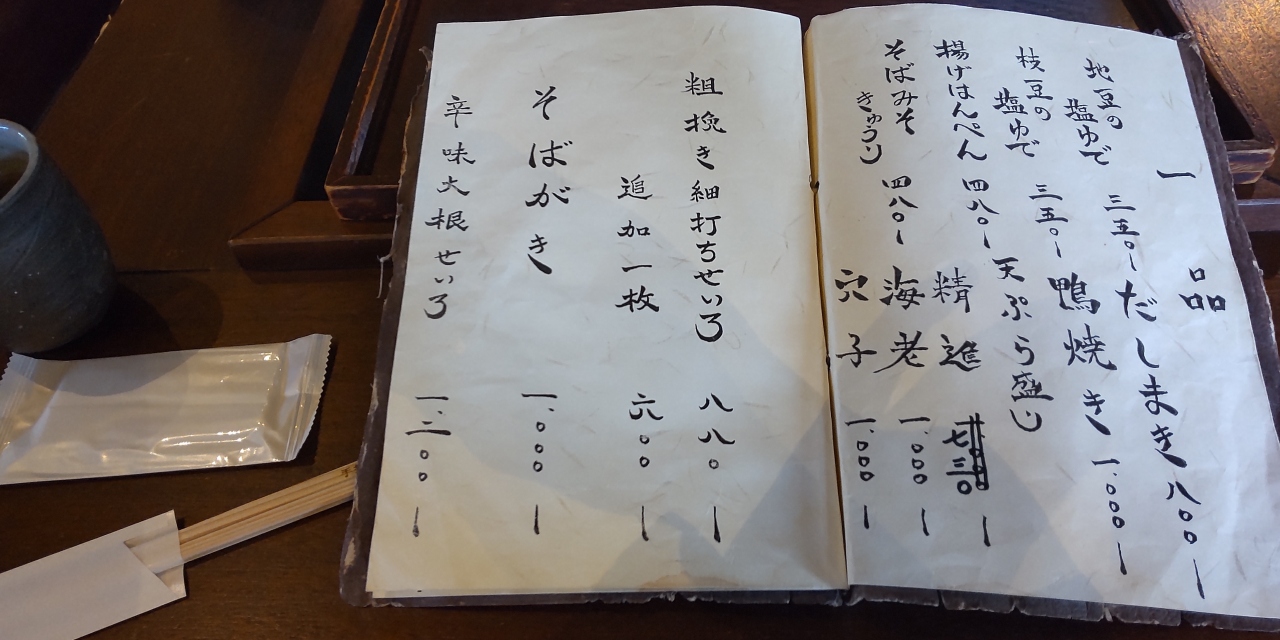 一品
だしまき 八〇〇ー
地豆の
塩ゆで 三五〇ー
鴨焼き 一、〇〇〇ー
枝豆の
塩ゆで 三五〇ー
天ぷら盛り
揚げはんぺん 四八〇ー
精進 七三〇ー
海老 一、〇〇〇ー
そばみそ
きゅうり 四八〇ー
穴子 一、〇〇〇ー
粗挽き細打ちせいろ 八八〇ー
追加一枚 六〇〇ー
そばがき 一、〇〇〇ー
辛味大根せいろ 一、二〇〇ー